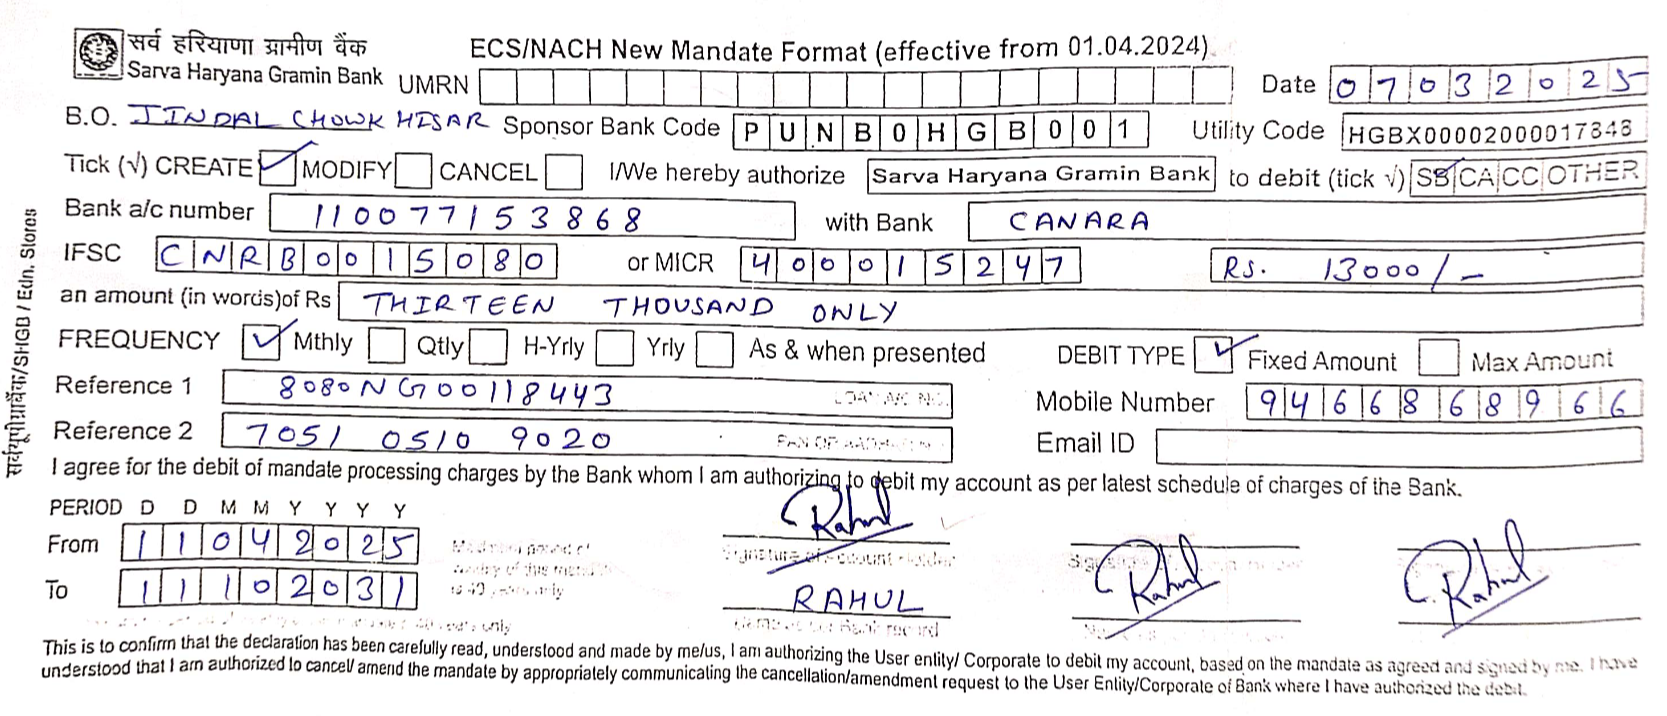 सर्व हरियाणा ग्रामीण बैंक
Sarva Haryana Gramin Bank
ECS/NACH New Mandate Format (effective from 01.04.2024)
UMRN Date 07032025
B.O. JINDAL CHOWK HISAR Sponsor Bank Code PUNB0HGB001 Utility Code HGBX00002000017848
Tick (√) CREATE MODIFY CANCEL I/We hereby authorize Sarva Haryana Gramin Bank to debit (tick √) SB CA CC OTHER
Bank a/c number 110077153868 with Bank CANARA
IFSC CNRB0015080 or MICR 400015247 Rs. 13000/-
an amount (in words)of Rs THIRTEEN THOUSAND ONLY
FREQUENCY Mthly Qtly H-Yrly Yrly As & when presented DEBIT TYPE Fixed Amount Max Amount
Reference 1 8080NG00118443 Mobile Number 9466868966
Reference 2 7051 0510 9020 Email ID
I agree for the debit of mandate processing charges by the Bank whom I am authorizing to debit my account as per latest schedule of charges of the Bank.
PERIOD D D M M Y Y Y Y
From 11042025
To 11102031
Rahul
RAHUL
Rahul
Rahul
This is to confirm that the declaration has been carefully read, understood and made by me/us, I am authorizing the User entity/ Corporate to debit my account, based on the mandate as agreed and signed by me. I have
understood that I am authorized to cancel/ amend the mandate by appropriately communicating the cancellation/amendment request to the User Entity/Corporate of Bank where I have authorized the debit.
/SHGB / Edn. Stores